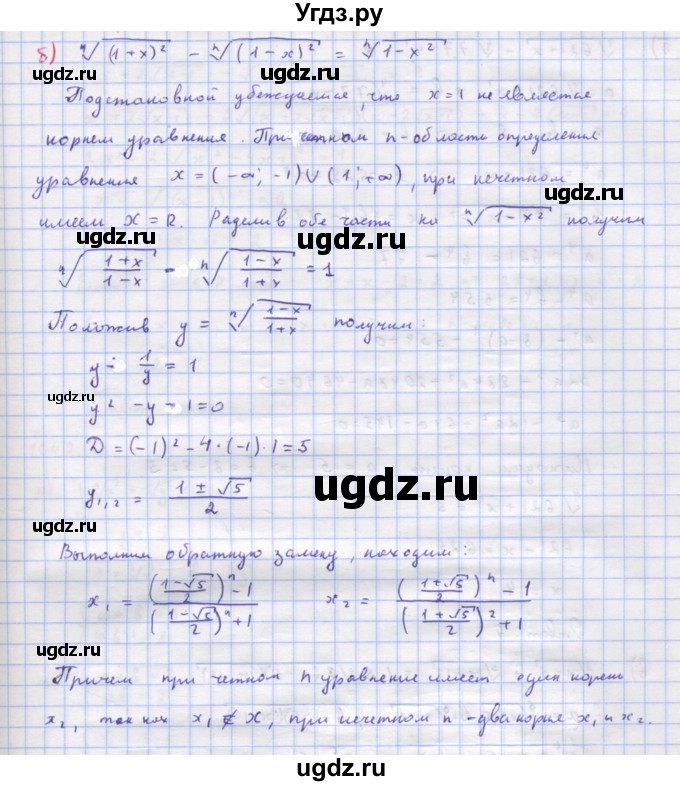 Угдз.ру
8) \sqrt[n]{(1+x)^2} - \sqrt[n]{(1-x)^2} = \sqrt[n]{1-x^2}
ugdz.ru ugdz.ru ugdz.ru
Подстановкой убеждаемся, что x=1 не является
корнем уравнения. При четном n-области определения
уравнения x = (-∞; -1) ∪ (1; +∞), при нечетном
имеем X = R. Разделив обе части на \sqrt[n]{1-x^2} получим
ugdz.ru
ugdz.ru
\sqrt[n]{\frac{1+x}{1-x}} - \sqrt[n]{\frac{1-x}{1+x}} = 1
Положив y = \sqrt[n]{\frac{1-x}{1+x}} получим:
y - \frac{1}{y} = 1
ugdz.ru
y^2 - y - 1 = 0
D = (-1)^2 - 4·(-1)·1 = 5
ugdz.ru
y_{1,2} = \frac{1±\sqrt{5}}{2}
ugdz.ru
Выполним обратную замену, находим:
x_1 = \frac{(\frac{1-\sqrt{5}}{2})^n - 1}{(\frac{1-\sqrt{5}}{2})^n + 1} x_2 = \frac{(\frac{1+\sqrt{5}}{2})^n - 1}{(\frac{1+\sqrt{5}}{2})^2 + 1}
ugdz.ru
Причем при четном n уравнение имеет один корень
x_2, так как x_1 ∉ X, при нечетном n - два корня x_1 и x_2.
ugdz.ru ugdz.ru ugdz.ru
ugdz.ru